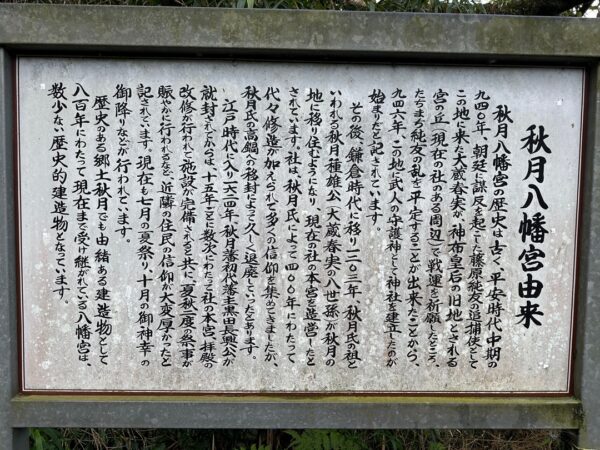 秋月八幡宮由来
秋月八幡宮の歴史は古く、平安時代中期の
九四〇年、朝廷に謀反を起こした藤原純友追捕使として
この地に来た大蔵春実が、神布皇后の旧地とされる
宮の丘(現在の社のある周辺)で戦運を祈願したところ、
たちまち純友の乱を平定することが出来たことから、
九四六年、この地に武人の守護神として神社を建立したのが
始まりだと記されています。
その後、鎌倉時代に移り一二〇三年、秋月氏の祖と
いわれる秋月種雄公(大蔵春実の八世孫)が秋月の
地に移り住むようになり、現在の社の本宮を造営したと
されています。社は、秋月氏によって四〇〇年にわたって
代々修造が加えられて多くの信仰を集めてきましたが、
秋月氏の高鍋への移封によって久しく退廃していったとあります。
江戸時代に入り一六二四年、秋月藩初代藩主黒田長興公が
就封されてからは、十五年ごとに数次にわたって社の本宮、拝殿の
改修が行われて施設が完備されると共に、夏秋二度の祭事が
賑やかに行われるなど、近隣の住民の信仰が大変厚かったと
記されています。現在も七月の夏祭り、十月の御神幸の
御降りなどが行われています。
歴史のある郷土秋月でも由緒ある建造物として
八百年にわたって現在まで受け継がれている八幡宮は、
数少ない歴史的建造物となっています。